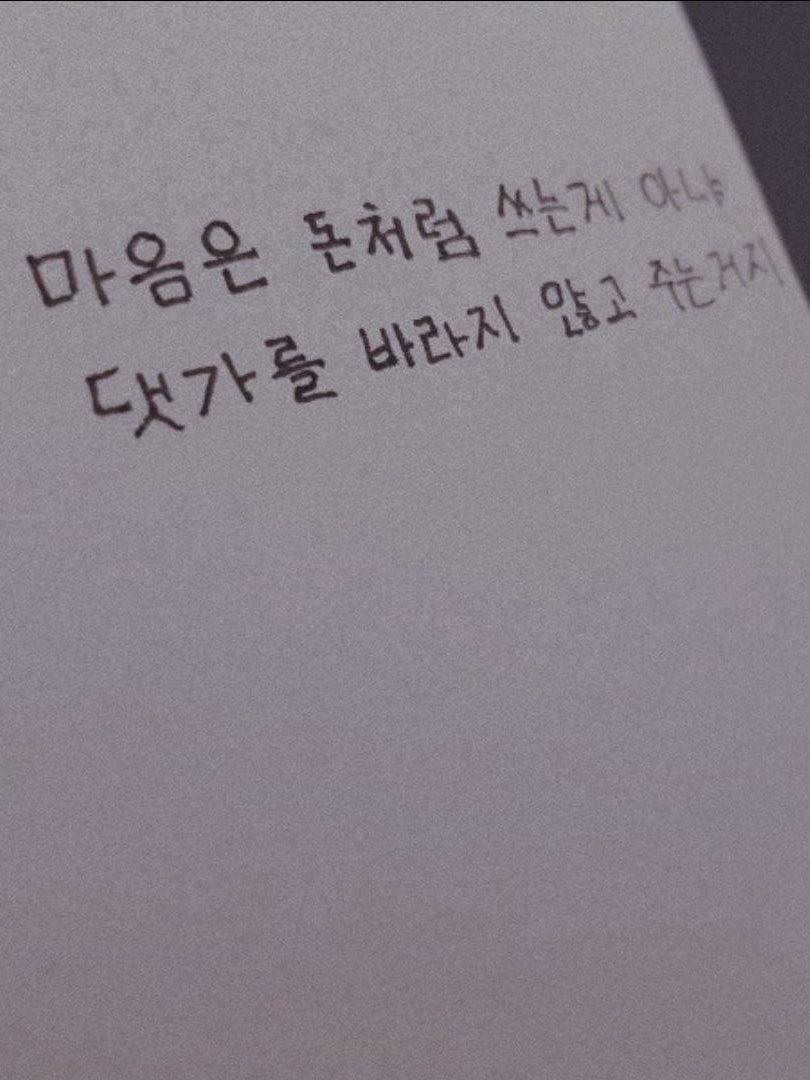 마음은 돈처럼 쓰는게 아냐
댓가를 바라지 않고 주는거지